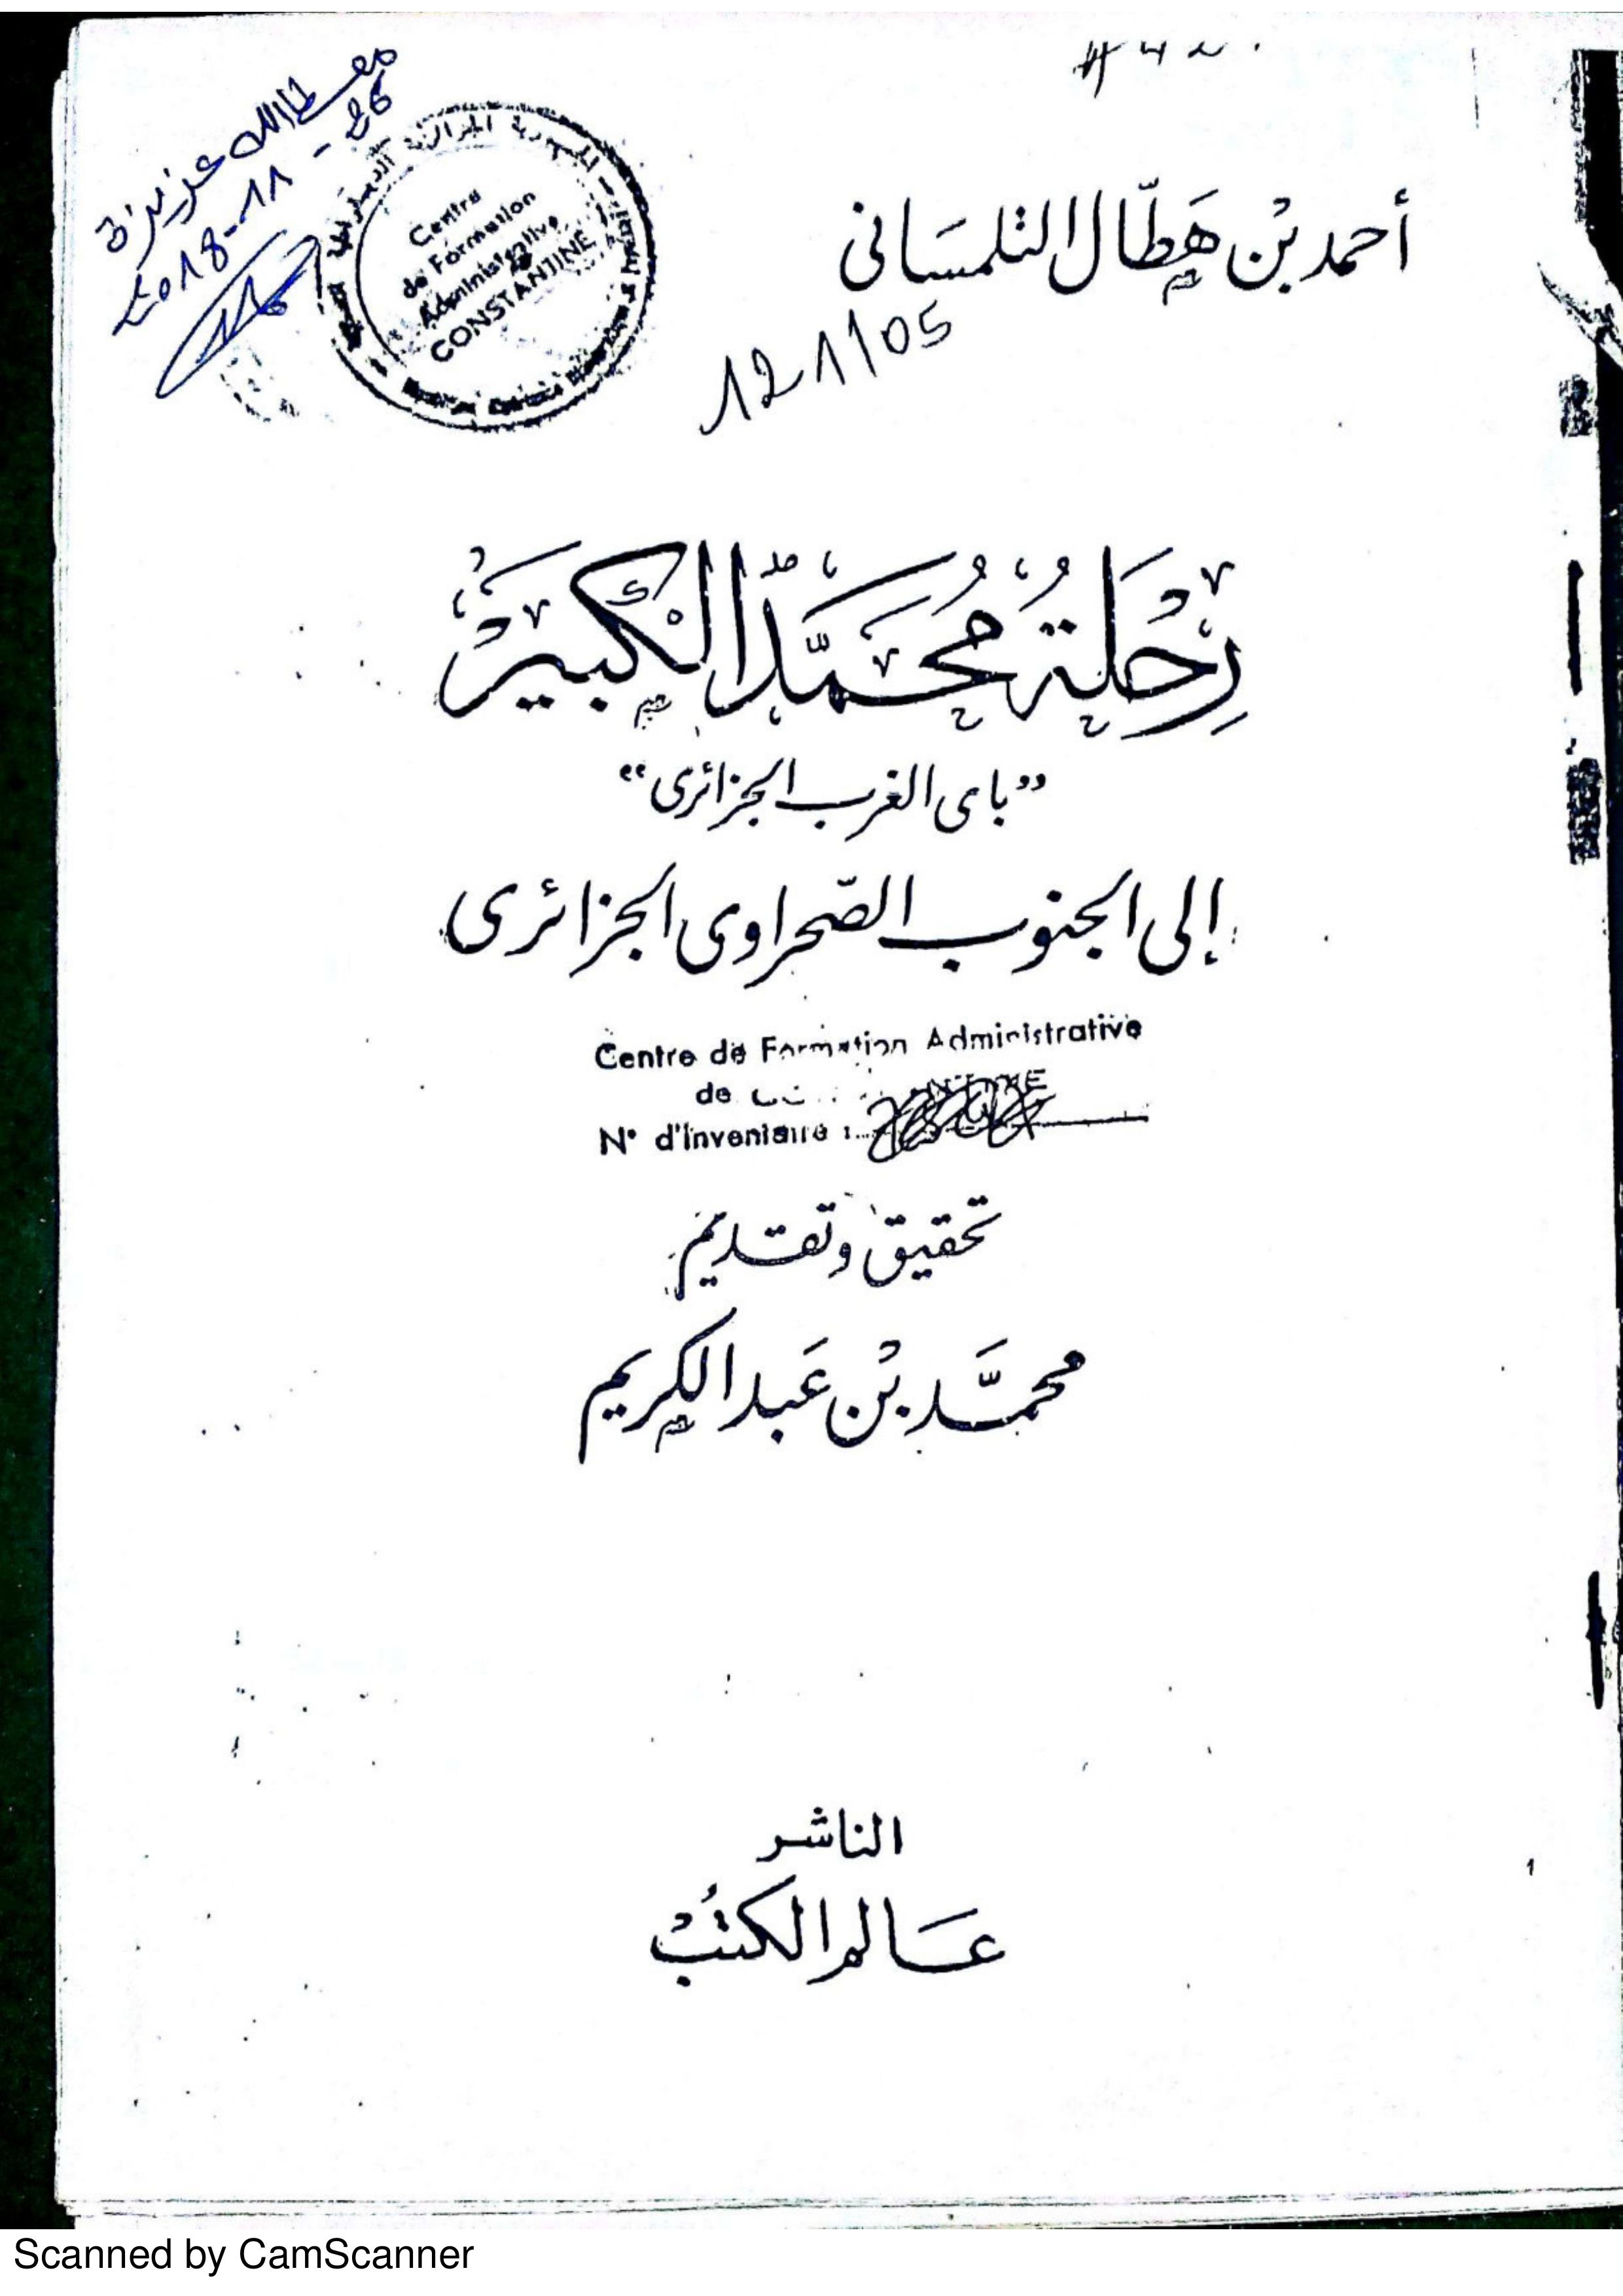 أحمد بْن هَطَّال التلمسَانى
معطاالله عزيزة
26-11-2018
Centre
de Formation
Administrative
CONSTANTINE
121/05
رِحْلَةُ مُحَمَّد الكَبِيرْ
”باى الغرب الجزائرى“
إلى الجنوب الصّحراوى الجزائرى
Centre de Formation Administrative
de
N° d'Inventaire :
تحقيق وتقديم
محمَّد بْن عَبد الكريم
الناشر
عَالم الكتُبْ
1
Scanned by CamScanner